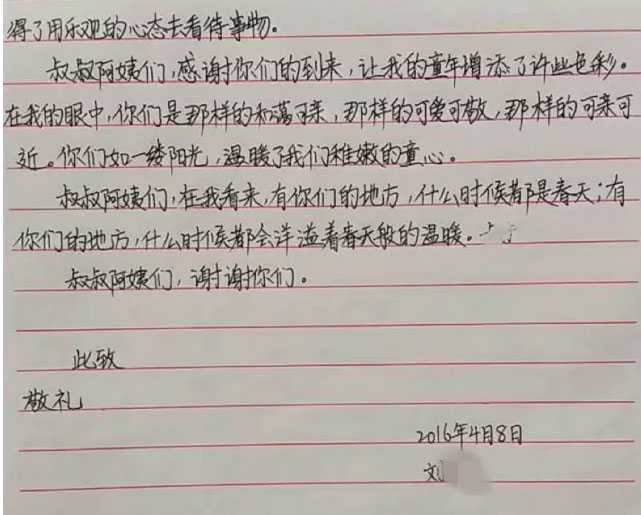 得了用乐观的心态去看待事物。
叔叔阿姨们，感谢你们的到来，让我的童年增添了许些色彩。
在我的眼中，你们是那样的和蔼可亲，那样的可爱可敬，那样的可亲可
近。你们如一缕阳光，温暖了我们稚嫩的童心。
叔叔阿姨们，在我看来，有你们的地方，什么时候都是春天；有
你们的地方，什么时候都会洋溢着春天般的温暖。
叔叔阿姨们，谢谢你们。
此致
敬礼
2016年4月8日
刘